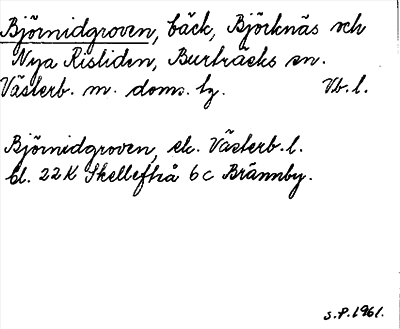 Björnidgroven, bäck, Björknäs och
Nya Risliden, Burträsks sn.
Västerb. m. doms. lz. Vb. l.
Björnidgroven, ek. Västerb. l.
bl. 22K Skellefteå 6c Brännby.
S.P. 1961.